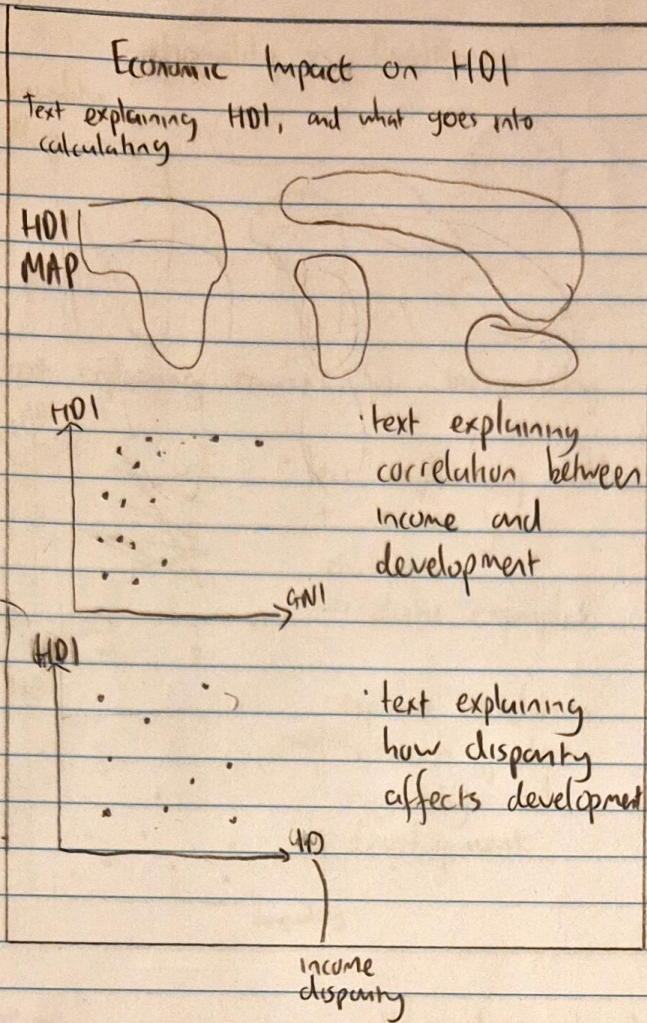 Economic Impact on HDI
Text explaining HDI, and what goes into
calculating
HDI
MAP
HDI
GNI
· text explaining
correlation between
income and
development
HDI
· text explaining
how disparity
affects development
income
disparity